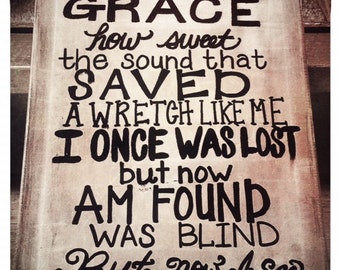 GRACE
how sweet
the sound that
SAVED
A WRETCH LIKE ME
I ONCE WAS LOST
but now
AM FOUND
WAS BLIND
But now I see